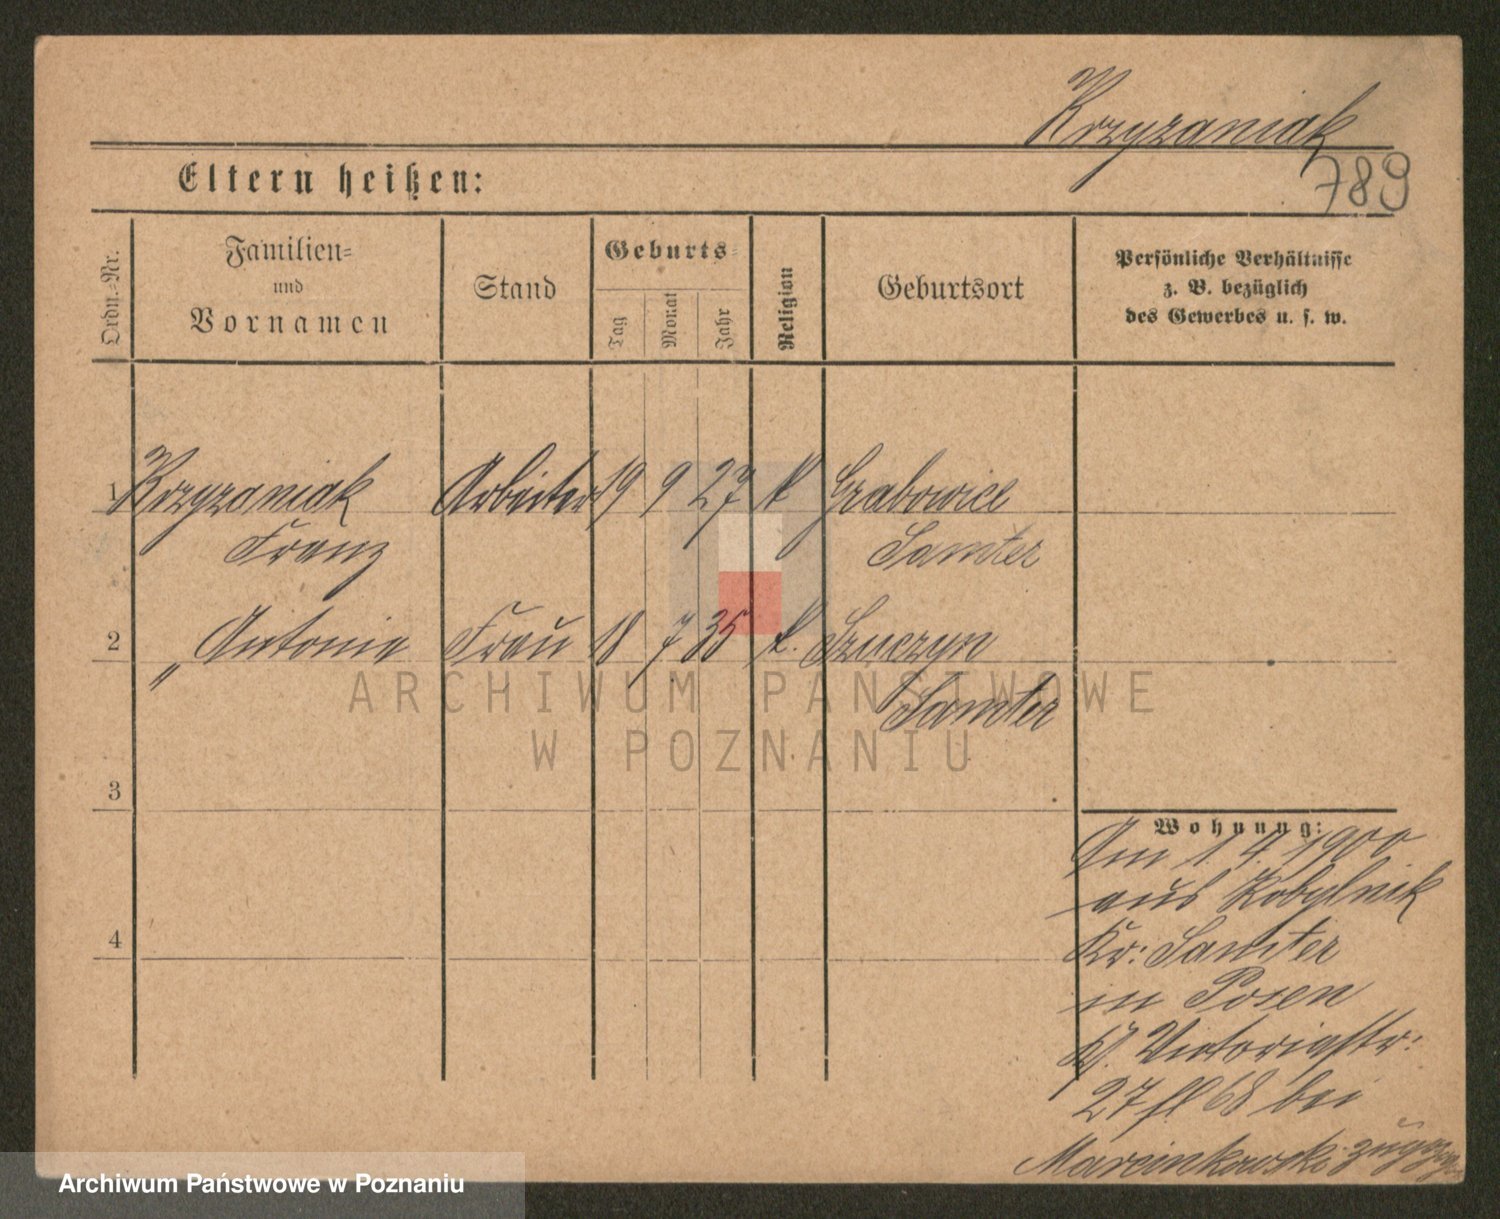 Krzyzaniak
789
Eltern heißen:
Ordn.-Nr.
Familien-
und
Vornamen
Stand
Geburts-
Tag
Monat
Jahr
Religion
Geburtsort
Persönliche Verhältnisse
z. B. bezüglich
des Gewerbes u. s. w.
1 Krzyzaniak Arbeiter 19 9 27 k Grabowice
Franz Samter
2 " Antonie Frau 18 7 35 k. Szuczyn
Samter
ARCHIWUM PAŃSTWOWE
W POZNANIU
3
4
Wohnung:
Am 1.4.1900
aus Kobylnik
Kr: Samter
in Posen
Victoriastr:
27 68 bei
Marcinkowski
Archiwum Państwowe w Poznaniu